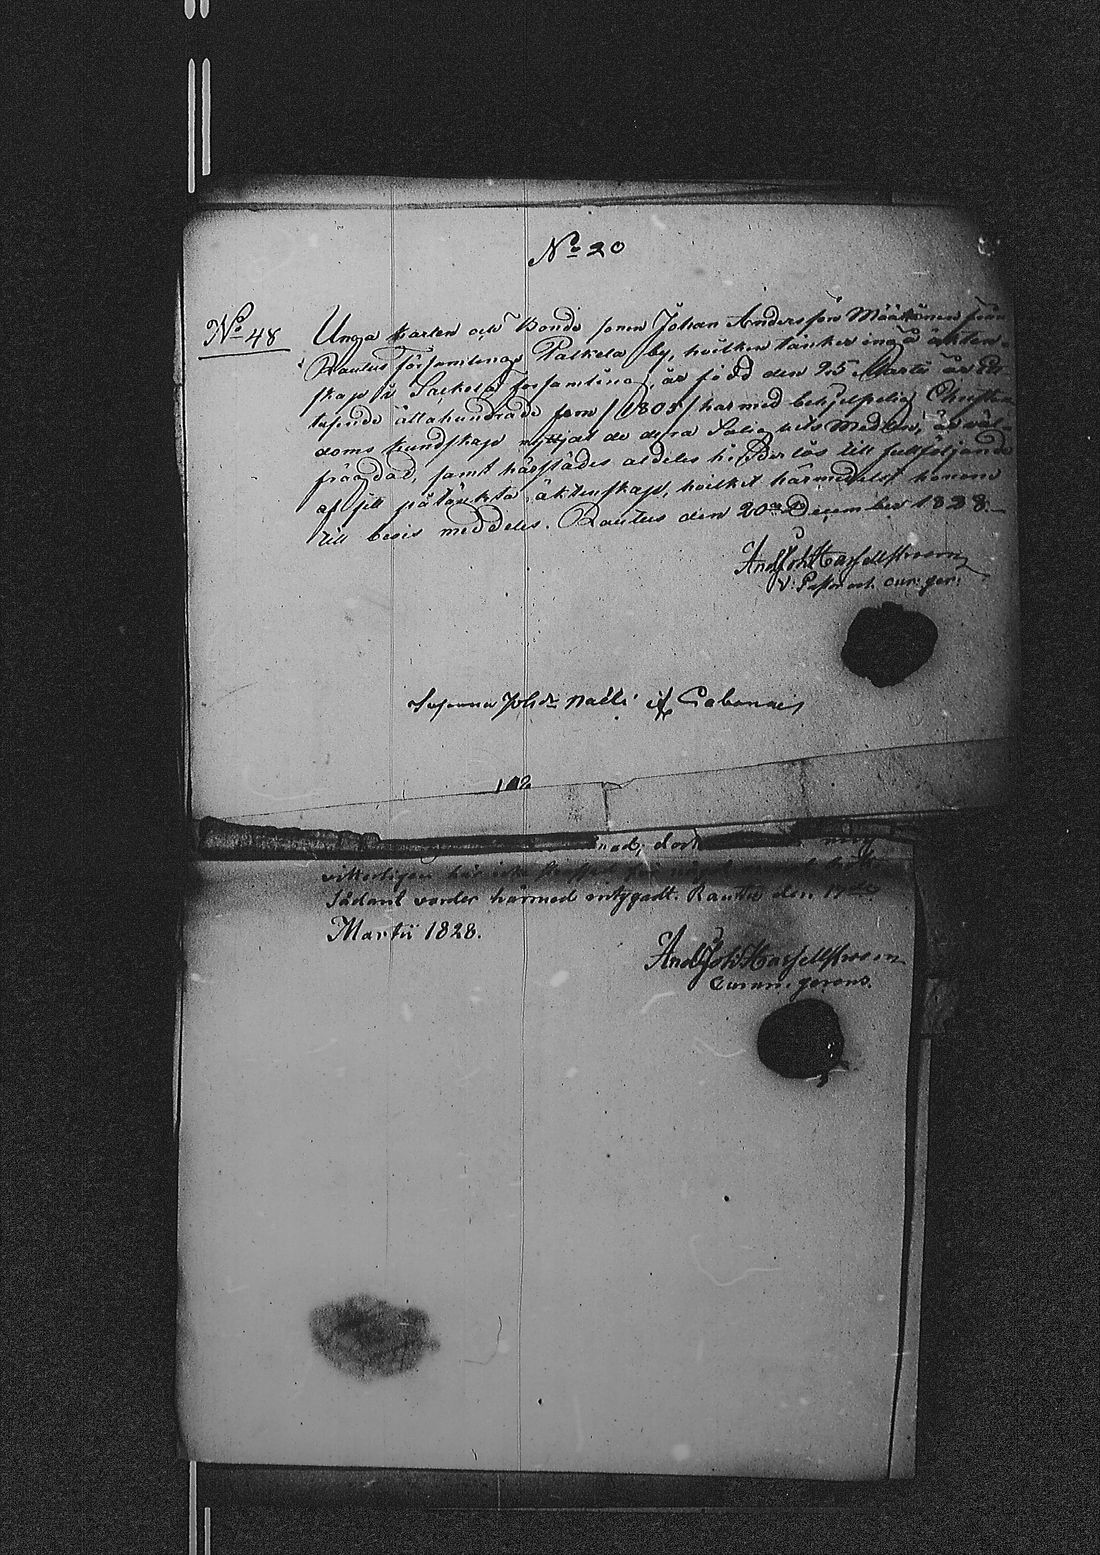 No 20
No 48
Unga karlen och Bonde sonen Johan Andersson Määtänen från
Rautus Församling Palkela by, hvilken tänker ingå äkten-
skap i Sackola församling, är född den 25 Martii år Et-
tusende åttahundrade fem /1805/ har med behjelpelig Christen-
doms kundskap nyttjat de dyra Salighets Medlen, är väl-
frägdad, samt härstädes aldeles hinder lös till fullföljande
af sitt påtänkta äktenskap, hvilket härmedelst honom
till bevis meddelas. Rautus den 20 December 1828.
And Joh Hasselstroem
V. Pastor och cur. ger.
Susanna Johsdr Nälli
102
nad, dock
vitterligen här icke straffad för något
Sådant varder härmed intygadt. Rautu den 17de
Martii 1828.
And Joh Hasselstroem
Curam gerens.